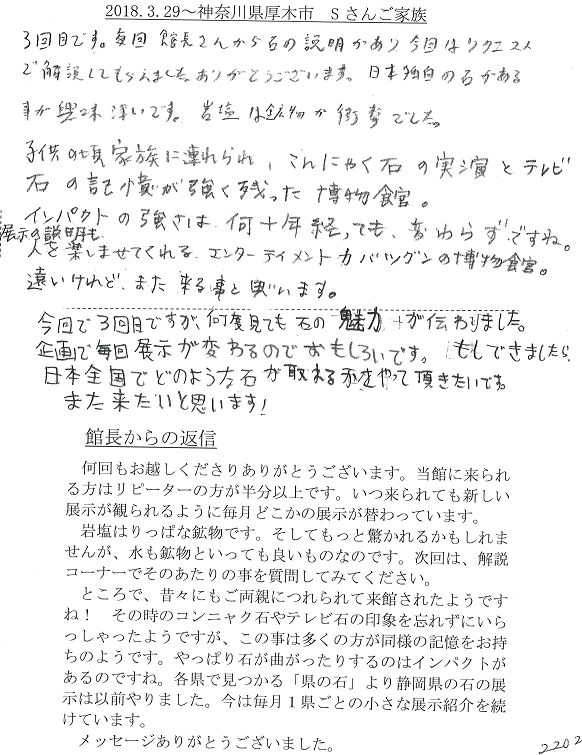 2018.3.29～神奈川県厚木市　Ｓさんご家族
3回目です。毎回 館長さんから石の説明があり今回はリクエスト
で解説してもらえましたありがとうございます。日本独自の石がある
事が興味深いです。岩塩は鉱物が衝撃でした。
子供の頃家族に連れられ、こんにゃく石の実演とテレビ
石の記憶が強く残った博物館。
インパクトの強さは何十年経っても、変わらずですね。
展示の説明も
人を楽しませてくれる エンターテイメント力バツグンの博物館。
遠いけれど、また来る事と思います。
今回で3回目ですが、何度見ても石の魅力が伝わりました。
企画で毎回展示が変わるのでおもしろいです。もしできましたら、
日本全国でどのような石が取れるかをやって頂きたいです。
また来たいと思います!
館長からの返信
何回もお越しくださりありがとうございます。当館に来られ
る方はリピーターの方が半分以上です。いつ来られても新しい
展示が観られるように毎月どこかの展示が替わっています。
岩塩はりっぱな鉱物です。そしてもっと驚かれるかもしれま
せんが、水も鉱物といっても良いものなのです。次回は、解説
コーナーでそのあたりの事を質問してみてください。
ところで、昔々にもご両親につれられて来館されたようです
ね！　その時のコンニャク石やテレビ石の印象を忘れずにいら
っしゃったようですが、この事は多くの方が同様の記憶をお持
ちのようです。やっぱり石が曲がったりするのはインパクトが
あるのですね。各県で見つかる「県の石」より静岡県の石の展
示は以前やりました。今は毎月１県ごとの小さな展示紹介を続
けています。
メッセージありがとうございました。
2202